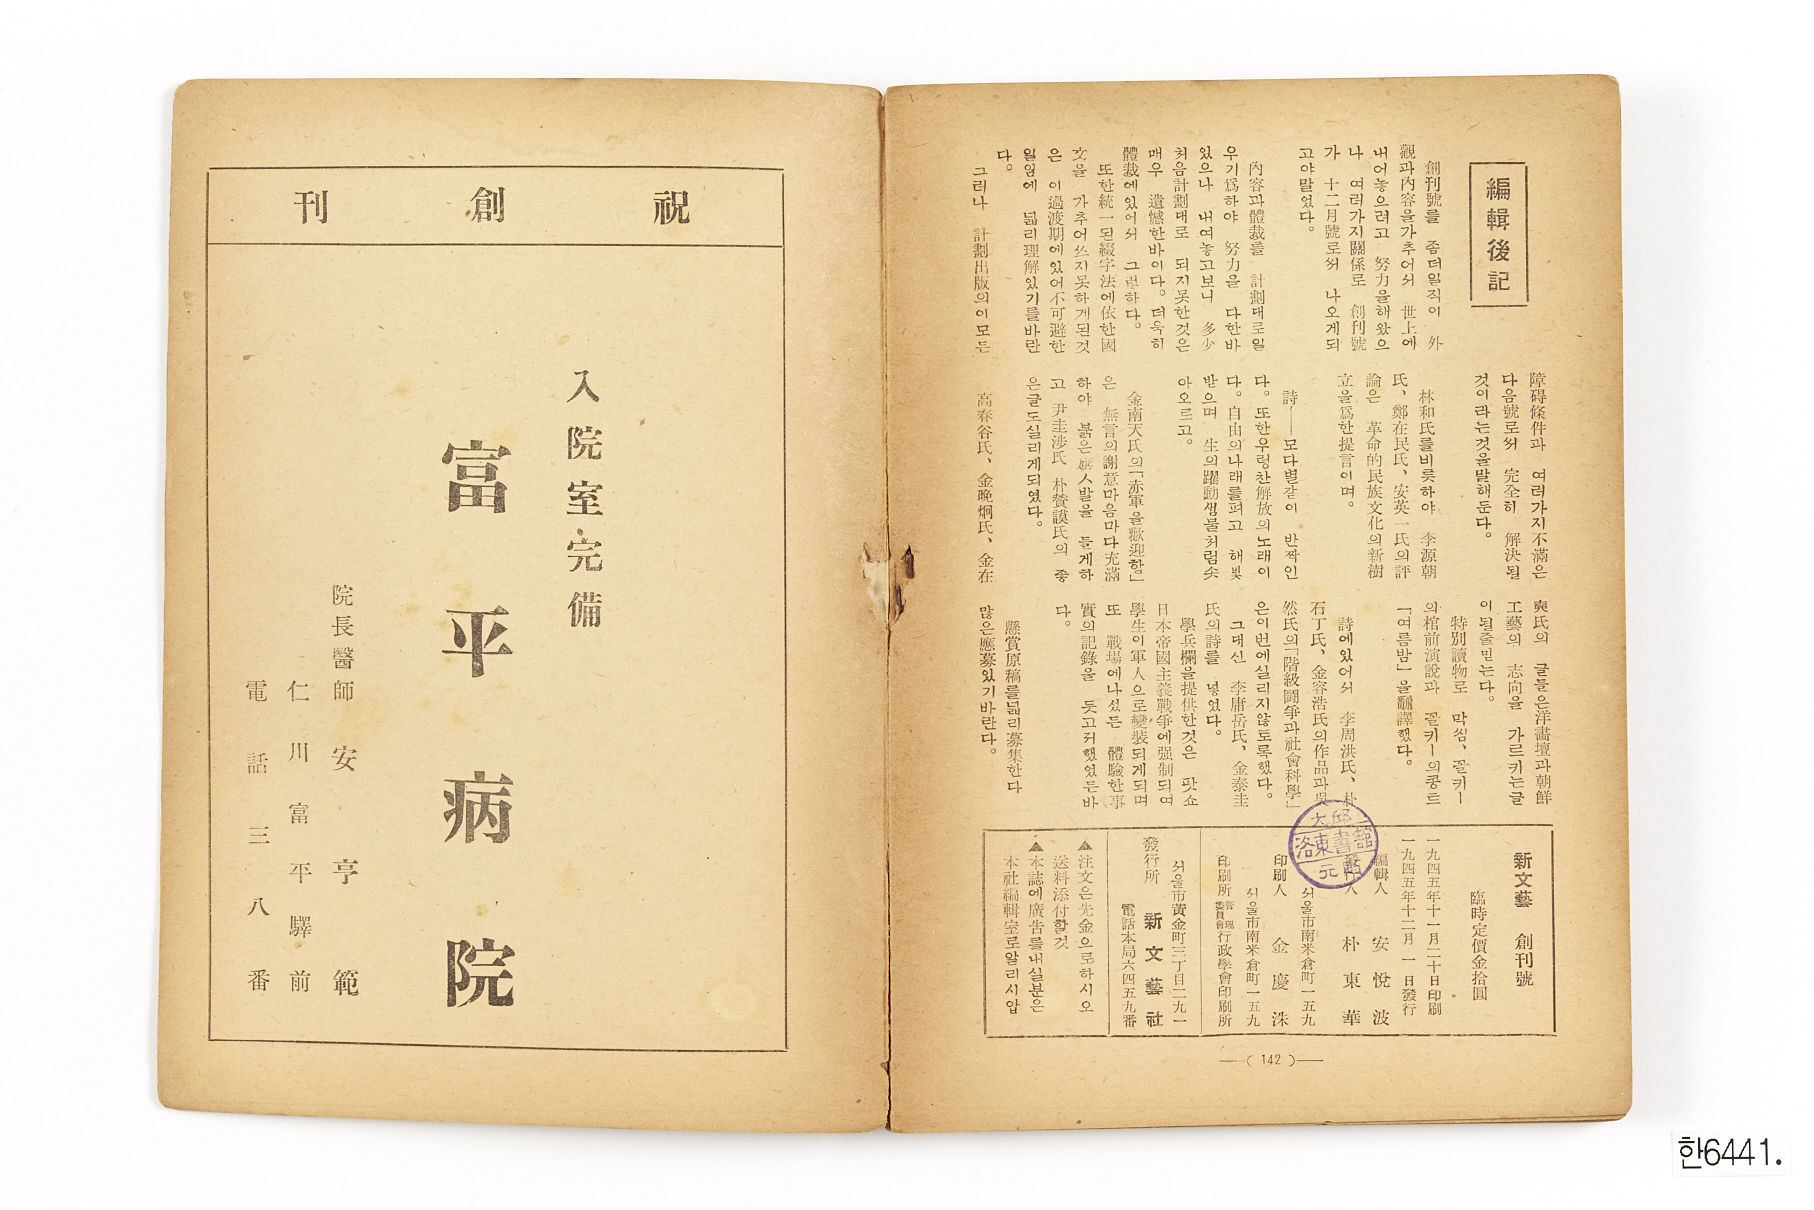 編輯後記
創刊號를 좀더일직이 外
觀과內容을가추어서 世上에
내어놓으려고 努力을해왔으
나 여러가지關係로 創刊號
가 十二月號로써 나오게되
고야말었다。
內容과體裁를 計劃대로일
우기爲하야 努力을 다한바
있으나 내여놓고보니 多少
처음計劃대로 되지못한것은
매우 遺憾한바이다。더욱히
體裁에있어서 그런하다。
또한統一된綴字法에依한國
文을 가추어쓰지못하게된것
은 이過渡期에있어不可避한
일임에 넓리理解있기를바란
다。
그러나 計劃出版의이모든
障碍條件과 여러가지不滿은
다음號로써 完全히 解決될
것이라는것을말해둔다。
林和氏를비롯하야 李源朝
氏、鄭在民氏、安英一氏의評
論은 革命的民族文化의新樹
立을爲한提言이며。
詩——모다별같이 반짝인
다。또한우렁찬解放의노래이
다。自由의나래를펴고 해빛
받으며 生의躍動생물처럼솟
아오르고。
金南天氏의「赤軍을歡迎함」
은 無言의謝意마음마다充滿
하야 붉은旗人발을 들게하
고 尹圭涉氏 朴贊謨氏의 좋
은글도실리게되였다。
高春谷氏、金晩炯氏、金在
爽氏의 글들은洋畵壇과朝鮮
工藝의 志向을 가르키는글
이될줄믿는다。
特別讀物로 막심、꼴키ー
의棺前演說과 꼴키ー의콩트
「여름밤」을飜譯했다。
詩에있어서 李周洪氏、朴
石丁氏、金容浩氏의作品과吳
然氏의「階級鬪爭과社會科學」
은이번에실리지않토록했다。
그대신 李庸岳氏、金泰圭
氏의詩를 넣었다。
學兵欄을提供한것은 팟쇼
日本帝國主義戰爭에强制되여
學生이軍人으로變裝되게되며
또 戰場에나섰든 體驗한事
實의記錄을 돗고저했었든바
다。
懸賞原稿를넓리募集한다
많은應募있기바란다。
新文藝 創刊號
臨時定價金拾圓
一九四五年十一月二十日印刷
一九四五年十二月 一 日發行
編輯人 安 悅 波
發行人 朴 東 華
서울市南米倉町一五九
印刷人 金 慶 洙
서울市南米倉町一五九
印刷所 管理委員會 行政學會印刷所
서울市黃金町三丁目二九一
發行所 新文藝社
電話本局六四五九番
▲注文은先金으로하시오
送料添付할것
▲本誌에廣告를내실분은
本社編輯室로알리시압
大邱
洛東書館
元町
——( 142 )——
祝 創 刊
入院室完備
富平病院
院長醫師 安 亨 範
仁川富平驛前
電話三八番
한6441.